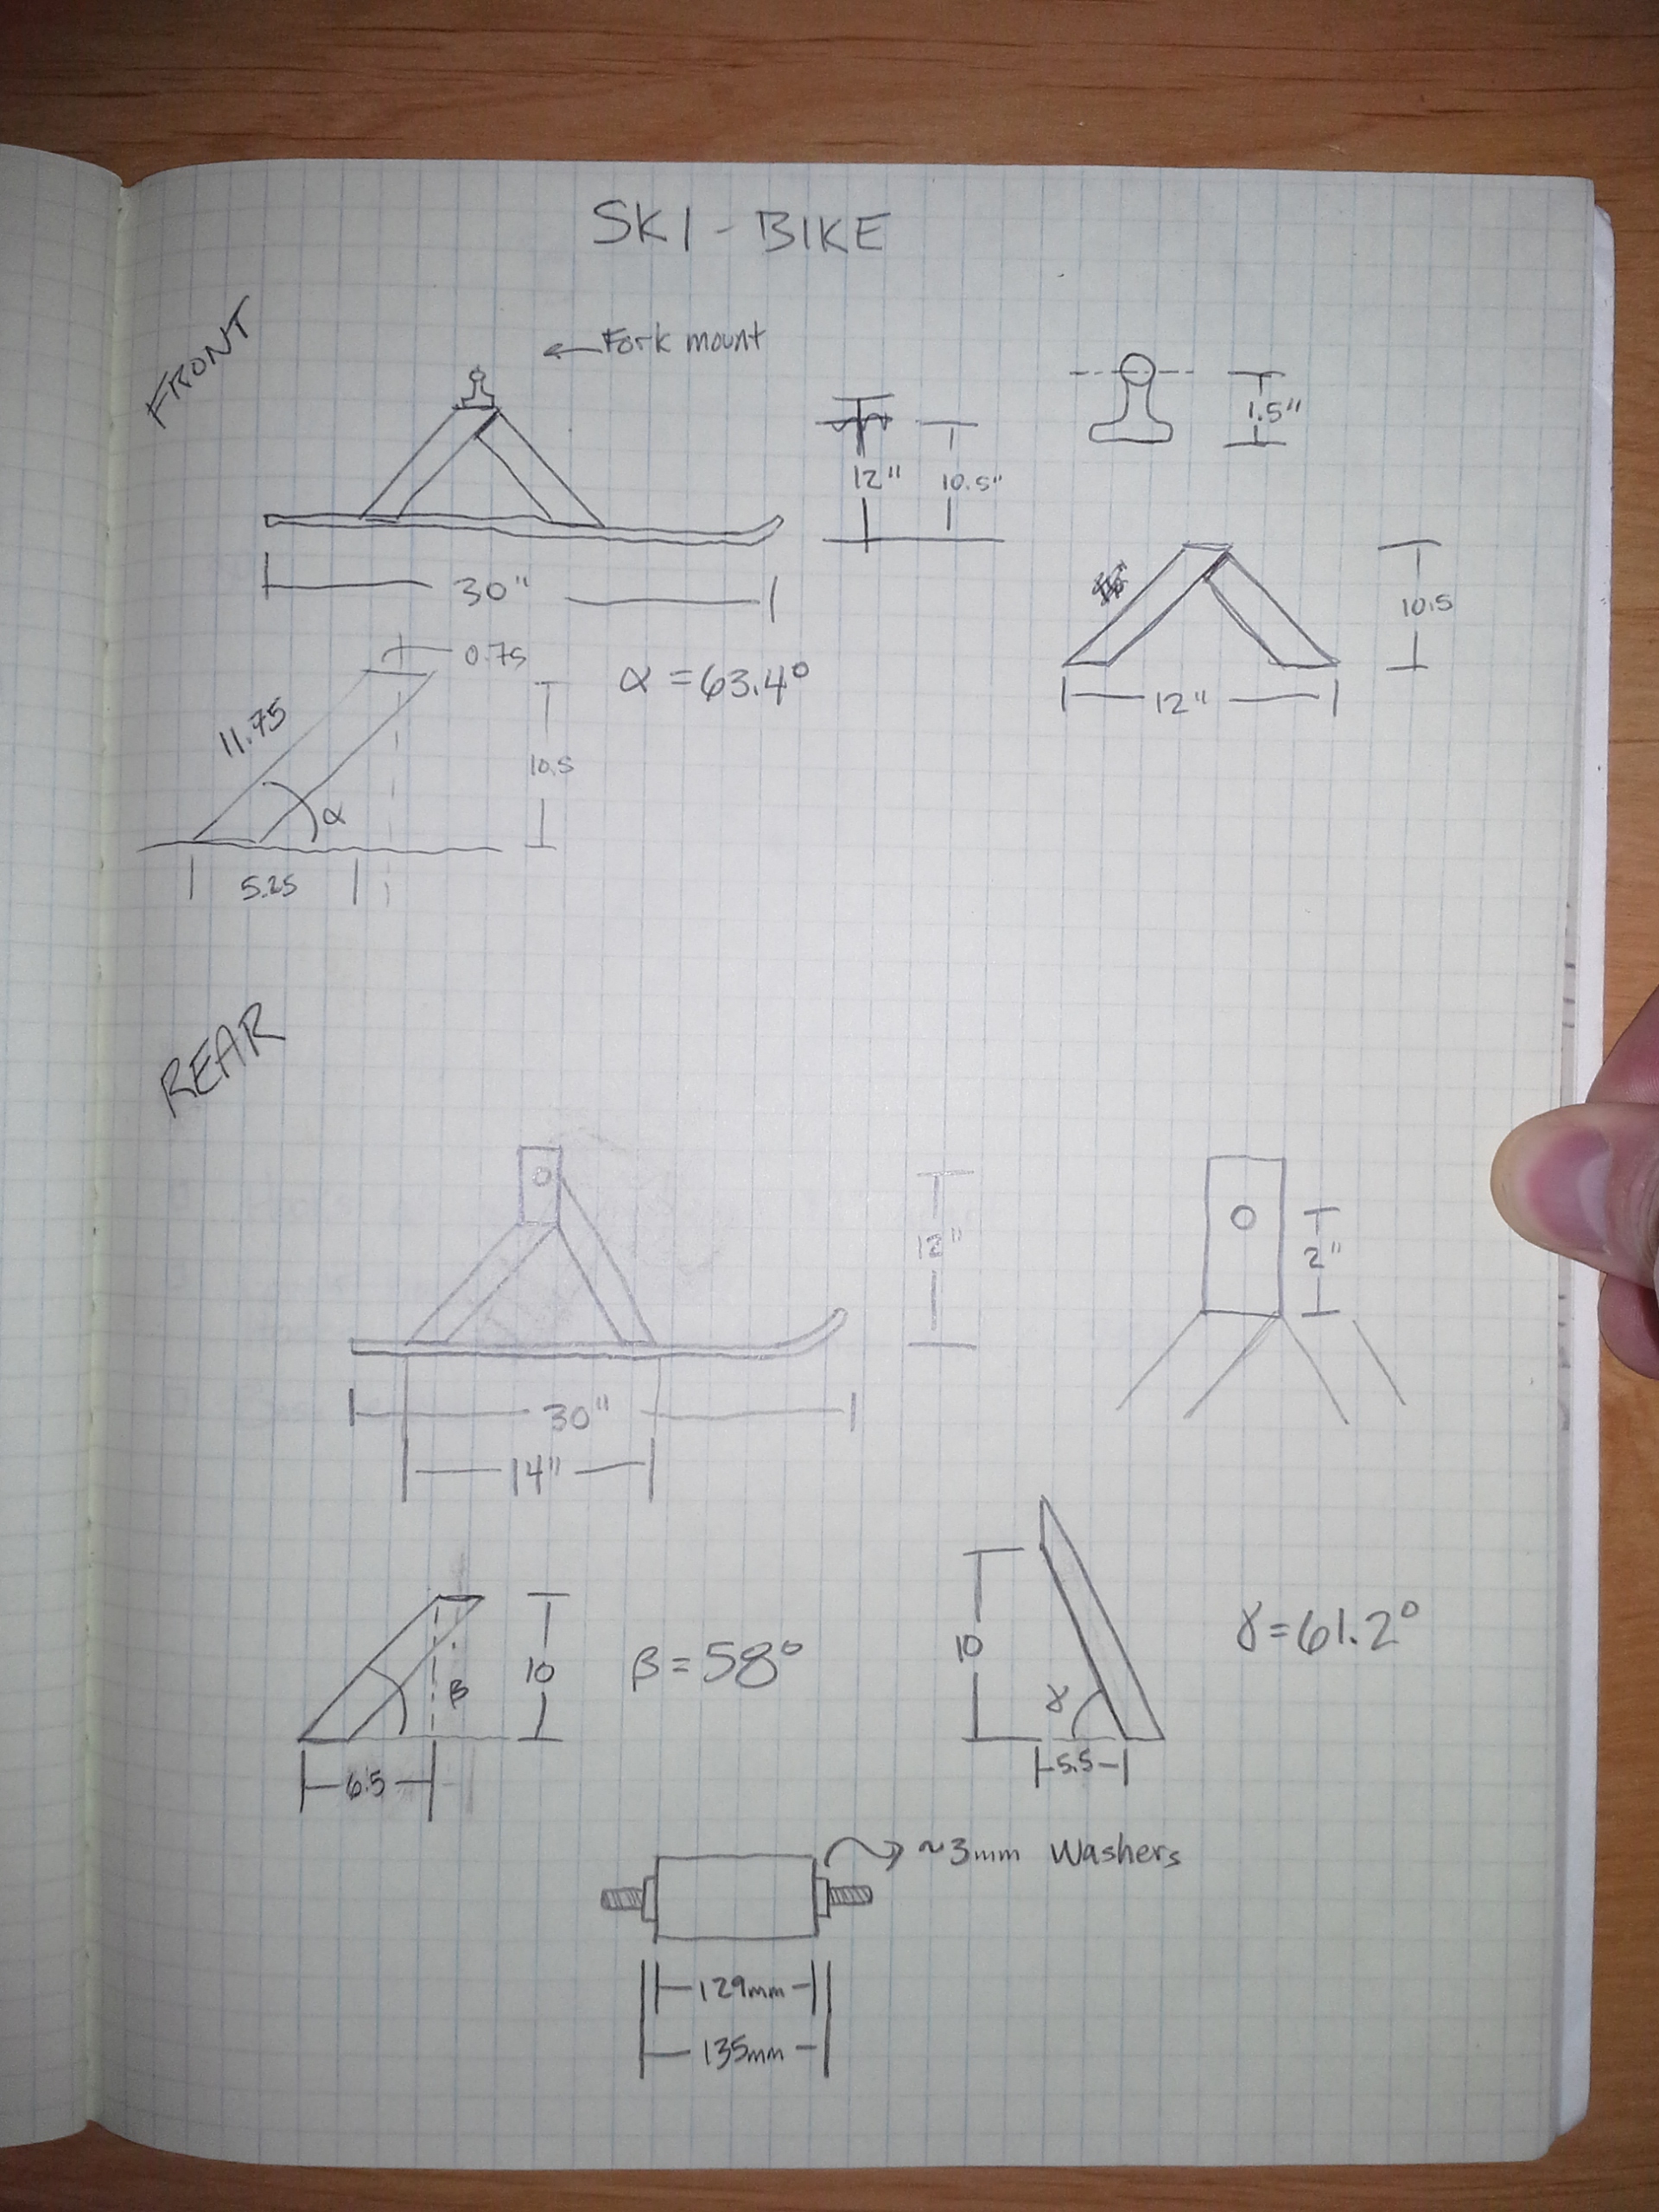 SKI-BIKE
FRONT
← Fork mount
12"
10.5"
1.5"
30"
10.5
12"
0.75
α = 63.4°
11.75
10.5
α
5.25
REAR
12"
2"
30"
14"
10
β = 58°
β
6.5
10
γ = 61.2°
γ
5.5
~3mm Washers
129mm
135mm